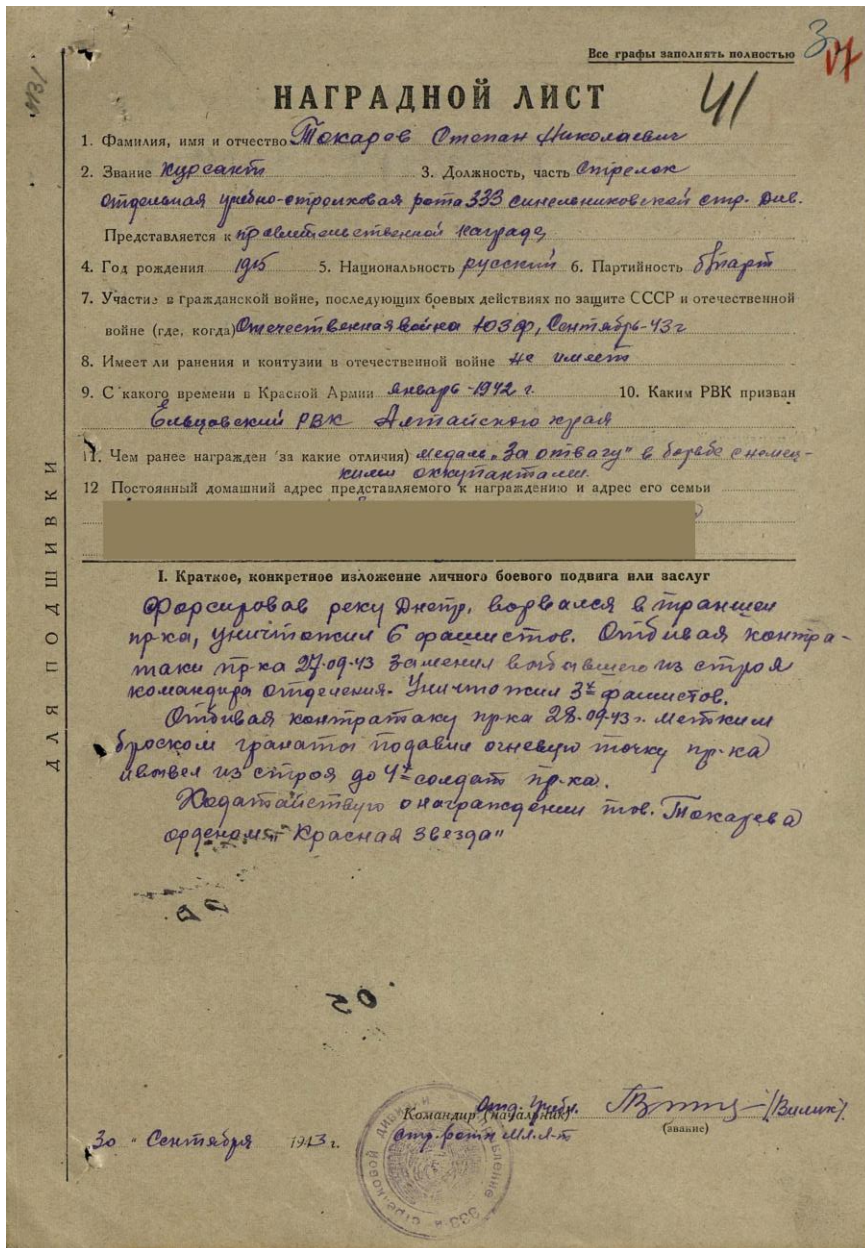 Все графы заполнять полностью
3
17
41
НАГРАДНОЙ ЛИСТ
1. Фамилия, имя и отчество Токарев Степан Николаевич
2. Звание Курсант 3. Должность, часть Стрелок
отдельная учебно-стрелковая рота 333 синельниковской стр. див.
Представляется к правительственной награде
4. Год рождения 1915 5. Национальность русский 6. Партийность б/парт
7. Участие в гражданской войне, последующих боевых действиях по защите СССР и отечественной
войне (где, когда) Отечественная война ЮЗФ, Сентябрь-43г
8. Имеет ли ранения и контузии в отечественной войне не имеет
9. С какого времени в Красной Армии Январь-1942 г. 10. Каким РВК призван
Ельцовский РВК Алтайского края
11. Чем ранее награжден (за какие отличия) медаль "За отвагу" в борьбе с немец-
кими оккупантами.
12 Постоянный домашний адрес представляемого к награждению и адрес его семьи
ДЛЯ ПОДШИВКИ
I. Краткое, конкретное изложение личного боевого подвига или заслуг
Форсировав реку Днепр, ворвался в траншеи
пр-ка, уничтожил 6 фашистов. Отбивая контра-
таки пр-ка 27.09.43 заменил выбывшего из строя
командира отделения. Уничтожил 3х фашистов.
Отбивая контратаку пр-ка 28.09.43 г. метким
броском гранаты подавил огневую точку пр-ка
и вывел из строя до 4х солдат пр-ка.
Ходатайствую о награждении тов. Токарева
орденом "Красная Звезда"
Командир (начальник) Отд. Учебн. (Вилик)
стр. роты мл. л-т (звание)
30 " Сентября 1943 г.